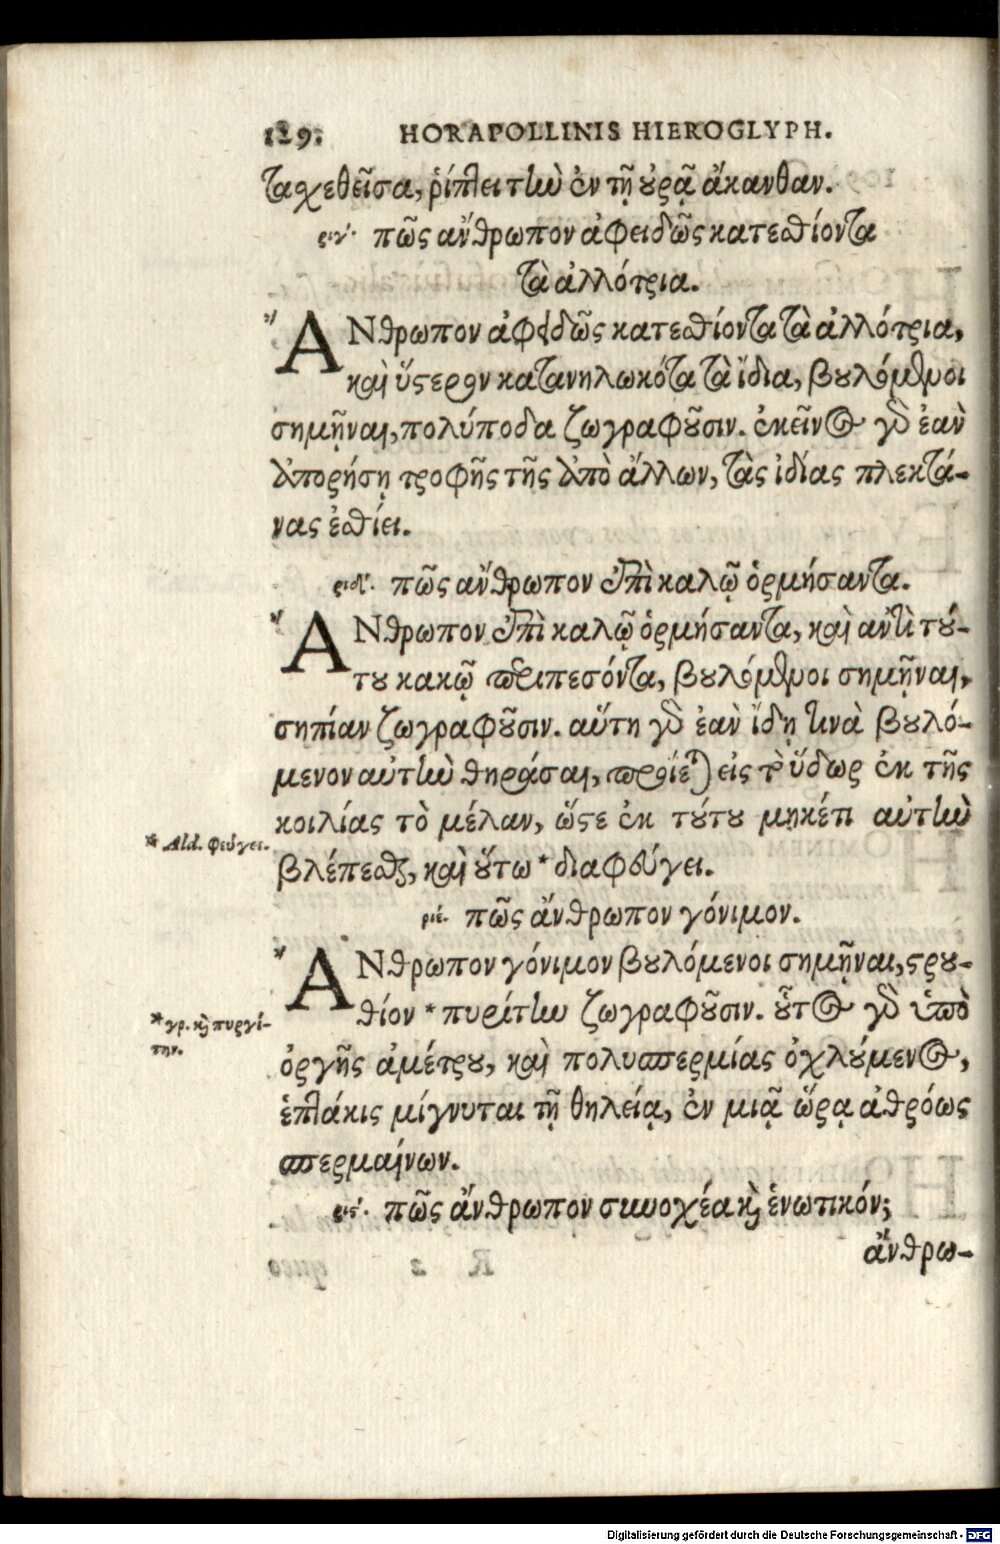 129. HORAPOLLINIS HIEROGLYPH.
ταχεθεῖσα, ῥίπτει τὴν ἐν τῇ οὐρᾷ ἄκανθαν.
ριγʹ. πῶς ἄνθρωπον ἀφειδῶς κατεσθίοντα
τὰ ἀλλότρια.
ἌΝθρωπον ἀφειδῶς κατεσθίοντα τὰ ἀλλότρια,
καὶ ὕστερον κατανηλωκότα τὰ ἴδια, βουλόμενοι
σημῆναι, πολύποδα ζωγραφοῦσιν. ἐκεῖνος γὰρ ἐὰν
ἀπορήσῃ τροφῆς τῆς ἀπὸ ἄλλων, τὰς ἰδίας πλεκτά-
νας ἐσθίει.
ριδʹ. πῶς ἄνθρωπον ἐπὶ καλῷ ὁρμήσαντα.
ἌΝθρωπον ἐπὶ καλῷ ὁρμήσαντα, καὶ ἀντὶ τού-
του κακῷ περιπεσόντα, βουλόμενοι σημῆναι,
σηπίαν ζωγραφοῦσιν. αὕτη γὰρ ἐὰν ἴδῃ τινὰ βουλό-
μενον αὐτὴν θηρᾶσαι, προΐεται εἰς τὸ ὕδωρ ἐκ τῆς
κοιλίας τὸ μέλαν, ὥστε ἐκ τούτου μηκέτι αὐτὴν
* Ald. φεύγει.
βλέπεσθαι, καὶ οὕτω * διαφεύγει.
ριέ. πῶς ἄνθρωπον γόνιμον.
ἌΝθρωπον γόνιμον βουλόμενοι σημῆναι, στρου-
θίον * πυρίτην ζωγραφοῦσιν. οὗτος γὰρ ὑπὸ
* γρ. καὶ πυργί-
την.
ὀργῆς ἀμέτρου, καὶ πολυσπερμίας ὀχλούμενος,
ἑπτάκις μίγνυται τῇ θηλείᾳ, ἐν μιᾷ ὥρᾳ ἀθρόως
σπερμαίνων.
ριϛʹ. πῶς ἄνθρωπον συνοχέα καὶ ἑνωτικόν;
ἄνθρω-
Digitalisierung gefördert durch die Deutsche Forschungsgemeinschaft - DFG